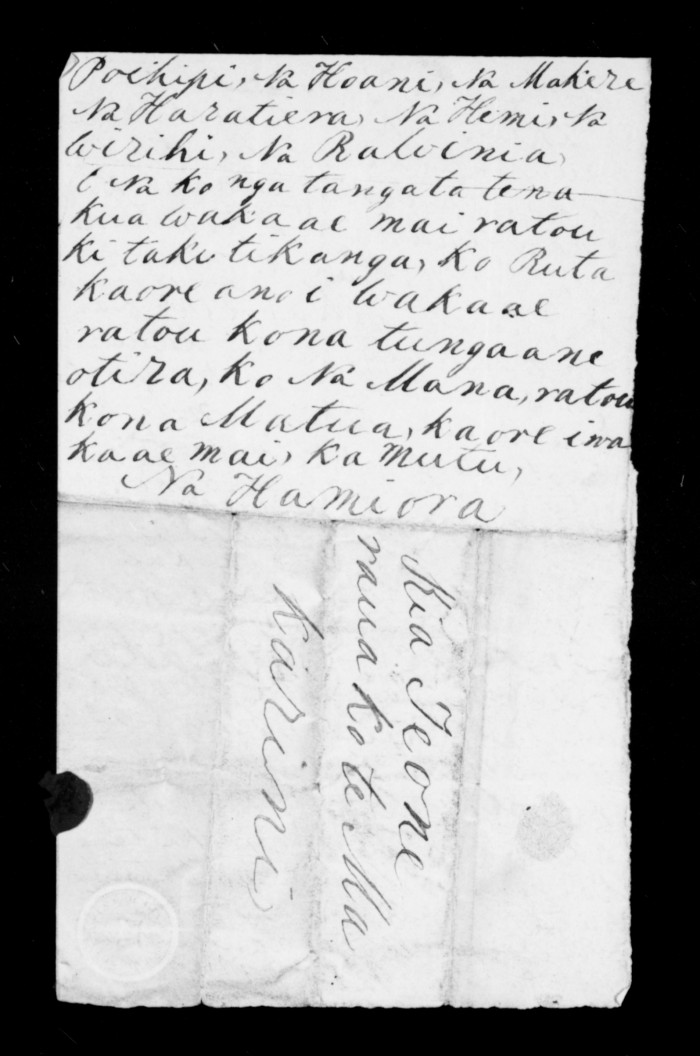 Poihipi, Na Hoani, Na Makere
Na Haratiera, Na Hemi, Na
Wirihi, Na Ralvinia,
E Na ko nga tangata tena
kua wakaae mai ratou
ki taku tikanga, ko Ruta
kaore ano i wakaae
ratou kona tungaane
otira, ko Na Mana, ratou
kona Matua, kaore i wa
kaae mai, ka mutu,
Na Hamiora
Kia Teone
raua ko te Ma
karini